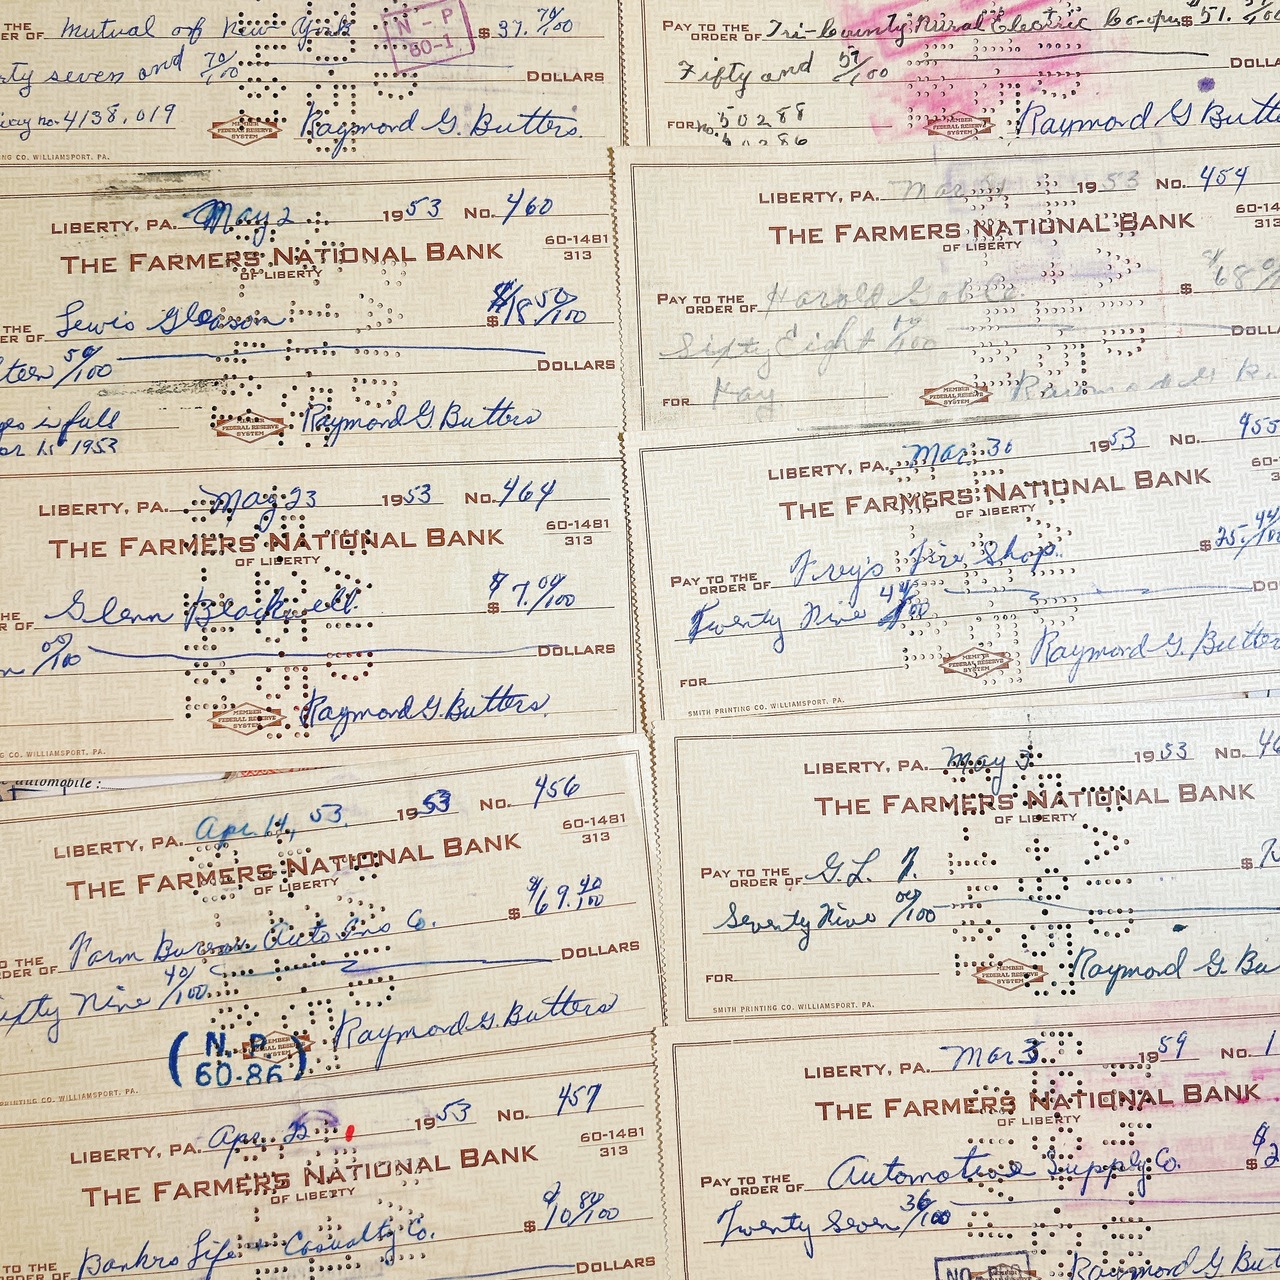 THE
ER OF Mutual of New York $ 37. 70/100
rty seven and 70/100 DOLLARS
no. 4138,019 MEMBER FEDERAL RESERVE SYSTEM Raymond G. Butters
NG CO. WILLIAMSPORT, PA.
N-P
60-1
LIBERTY, PA. May 2 1953 No. 460
THE FARMERS NATIONAL BANK 60-1481
OF LIBERTY 313
THE
ER OF Lewis Gleason $ 18 50/100
teen 50/100 DOLLARS
ges in full MEMBER FEDERAL RESERVE SYSTEM Raymond G. Butters
1953
LIBERTY, PA. May 23 1953 No. 464
THE FARMERS NATIONAL BANK 60-1481
OF LIBERTY 313
THE
ER OF Glenn Blackwell $ 7. 00/100
n 00/100 DOLLARS
MEMBER FEDERAL RESERVE SYSTEM Raymond G. Butters
G CO. WILLIAMSPORT, PA.
automobile:
LIBERTY, PA. Apr. 14, 53. 1953 No. 456
THE FARMERS NATIONAL BANK 60-1481
OF LIBERTY 313
TO THE
RDER OF Farm Bureau Auto Ins Co. $ 69. 40/100
ixty Nine 40/100 DOLLARS
(N.P.) MEMBER FEDERAL RESERVE SYSTEM Raymond G. Butters
60-86
PRINTING CO. WILLIAMSPORT, PA.
LIBERTY, PA. Apr. 22 1953 No. 457
THE FARMERS NATIONAL BANK 60-1481
OF LIBERTY 313
TO THE
ORDER OF Bankrs Life + Casualty Co. $ 10 80/100
DOLLARS
PAY TO THE
ORDER OF Tri-County Rural Electric Co-op $ 51.
Fifty and 57/100 DOLLA
FOR no. 50288 MEMBER FEDERAL RESERVE SYSTEM Raymond G Butte
50286
LIBERTY, PA. Mar 1953 No. 454
THE FARMERS NATIONAL BANK 60-14
OF LIBERTY 313
PAY TO THE
ORDER OF Harold Goble $ 68
Sixty Eight DOLLA
FOR Hay MEMBER FEDERAL RESERVE SYSTEM Raymond G
LIBERTY, PA. Mar. 30 1953 No. 455
THE FARMERS NATIONAL BANK 60-
OF LIBERTY 313
PAY TO THE
ORDER OF Frey's Tire Shop. $ 25. 44/100
Twenty Nine 44/100 DO
FOR MEMBER FEDERAL RESERVE SYSTEM Raymond G. Butters
SMITH PRINTING CO. WILLIAMSPORT, PA.
LIBERTY, PA. May 1953 No. 46
THE FARMERS NATIONAL BANK
OF LIBERTY
PAY TO THE
ORDER OF G.L. F. $ 7
Seventy Nine 00/100
FOR MEMBER FEDERAL RESERVE SYSTEM Raymond G. Bu
SMITH PRINTING CO. WILLIAMSPORT, PA.
LIBERTY, PA. Mar 3 1959 No. 1
THE FARMERS NATIONAL BANK
OF LIBERTY
PAY TO THE
ORDER OF Automotive Supply Co. $ 2
Twenty Seven 36/100
Raymond G But